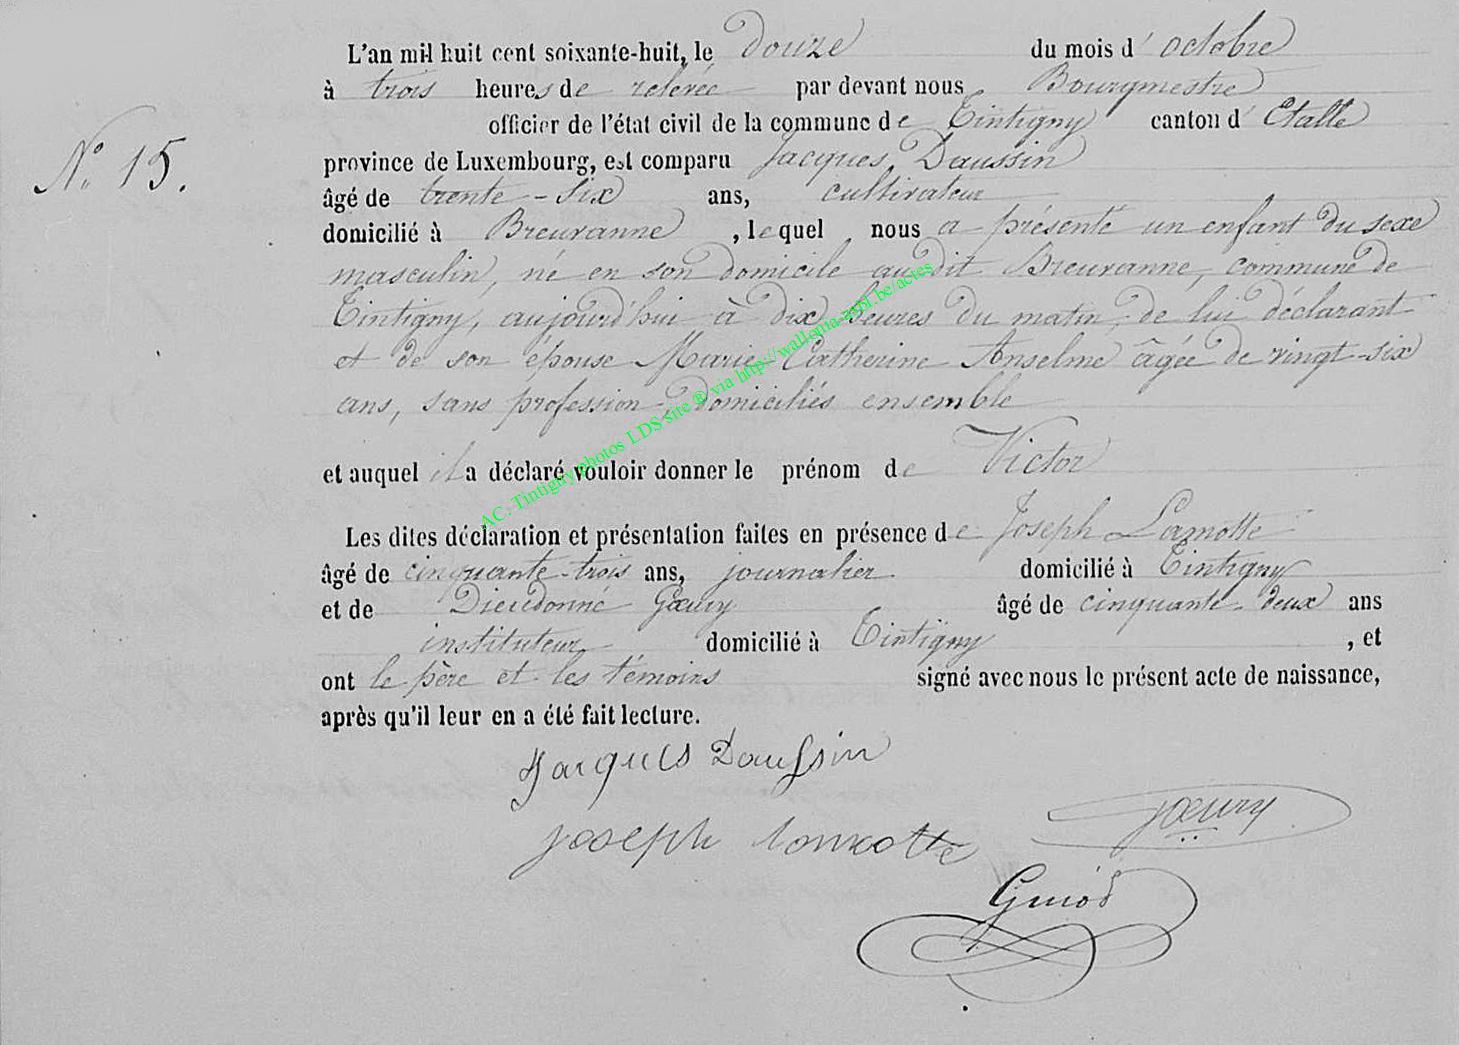 L'an mil huit cent soixante-huit, le douze du mois d'octobre
à trois heures de relevée par devant nous Bourgmestre
officier de l'état civil de la commune de Tintigny canton d'Etalle
N° 15.
province de Luxembourg, est comparu Jacques Daussin
âgé de trente-six ans, cultivateur
domicilié à Breuvanne, lequel nous a présenté un enfant du sexe
masculin, né en son domicile au dit Breuvanne, commune de
Tintigny, aujourd'hui à dix heures du matin, de lui déclarant
et de son épouse Marie Catherine Anselme âgée de vingt-six
ans, sans profession, domiciliés ensemble
et auquel il a déclaré vouloir donner le prénom de Victor
Les dites déclaration et présentation faites en présence de Joseph Lamotte
âgé de cinquante-trois ans, journalier domicilié à Tintigny
et de Dieudonné Goeury âgé de cinquante-deux ans
instituteur domicilié à Tintigny, et
ont le père et les témoins signé avec nous le présent acte de naissance,
après qu'il leur en a été fait lecture.
Jacques Daussin
Goeury
Joseph Lamotte
Guiot
AC. Tintigny photos LDS site ® via http://wallonia-asbl.be/actes